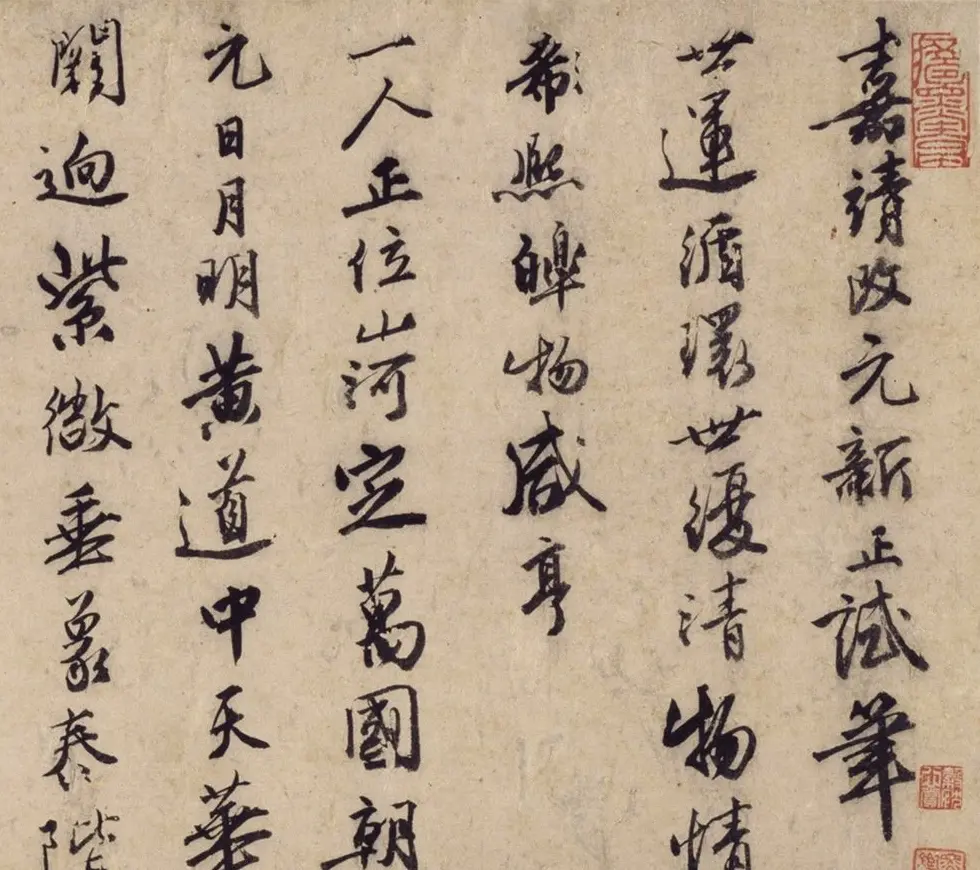 嘉靖改元新正試筆
世運循環世復清物情
希熙皞物咸亨
一人正位山河定萬國朝
元日月明黃道中天華
闕迥紫微垂象泰階